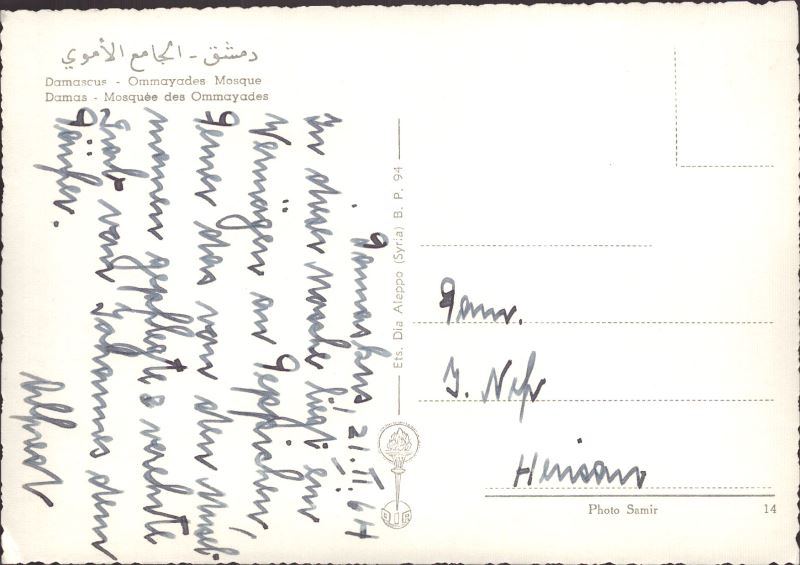 دمشق - الجامع الأموي
Damascus - Ommayades Mosque
Damas - Mosquée des Ommayades
Damaskus, 21. II. 64
In dieser Moschee liegt ein
Vermögen an Teppichen,
ferner das von den Musel-
manen gepflegte & verehrte
Grab von Johannes dem
Täufer.
Alfred
Ets. Dia Aleppo (Syria) B. P. 94
Fam.
J. Nef
Herisau
Photo Samir
14